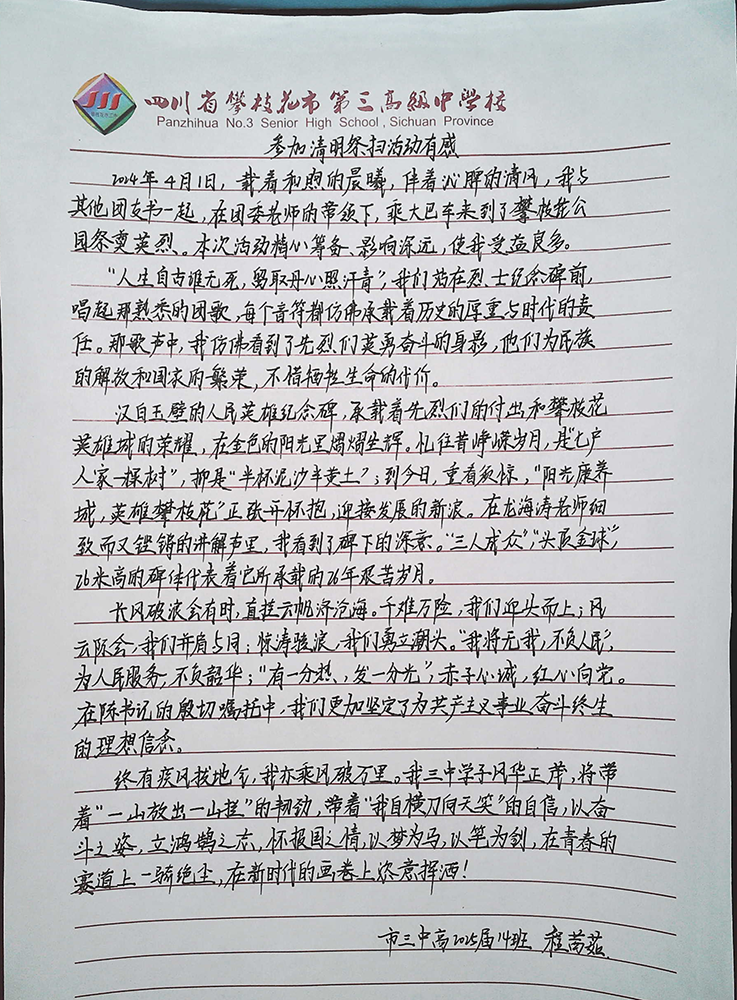 四川省攀枝花市第三高级中学校
Panzhihua No.3 Senior High School , Sichuan Province
参加清明祭扫活动有感
2024年4月1日，载着和煦的晨曦，伴着沁脾的清风，我与
其他团支书一起，在团委老师的带领下，乘大巴车来到了攀枝花公
园祭奠英烈。本次活动精心筹备、影响深远，使我受益良多。
“人生自古谁无死，留取丹心照汗青”，我们站在烈士纪念碑前，
唱起那熟悉的团歌，每个音符都仿佛承载着历史的厚重与时代的责
任。那歌声中，我仿佛看到了先烈们英勇奋斗的身影，他们为民族
的解放和国家的繁荣，不惜牺牲生命的代价。
汉白玉壁的人民英雄纪念碑，承载着先烈们的付出和攀枝花
英雄城的荣耀，在金色的阳光里熠熠生辉。忆往昔峥嵘岁月，是“七户
人家一棵树”，抑是“半杯泥沙半黄土”；到今日，重看纵惊，“阳光康养
城，英雄攀枝花”正张开怀抱，迎接发展的新浪。在龙海涛老师细
致而又铿锵的讲解声里，我看到了碑下的深意。“三人成众”，“头顶金球”，
26米高的碑体代表着它所承载的26年艰苦岁月。
长风破浪会有时，直挂云帆济沧海。千难万险，我们迎头而上；风
云际会，我们并肩与同；惊涛骇浪，我们勇立潮头。“我将无我，不负人民”，
为人民服务，不负韶华；“有一分热，发一分光”，赤子心诚，红心向党。
在陈书记的殷切嘱托中，我们更加坚定了为共产主义事业奋斗终生
的理想信念。
终有疾风拔地气，我亦乘风破万里。我三中学子风华正茂，将带
着“一山放出一山拦”的韧劲，带着“我自横刀向天笑”的自信，以奋
斗之姿，立鸿鹄之志，怀报国之情，以梦为马，以笔为剑，在青春的
赛道上一骑绝尘，在新时代的画卷上恣意挥洒！
市三中高2025届14班 程茜茹